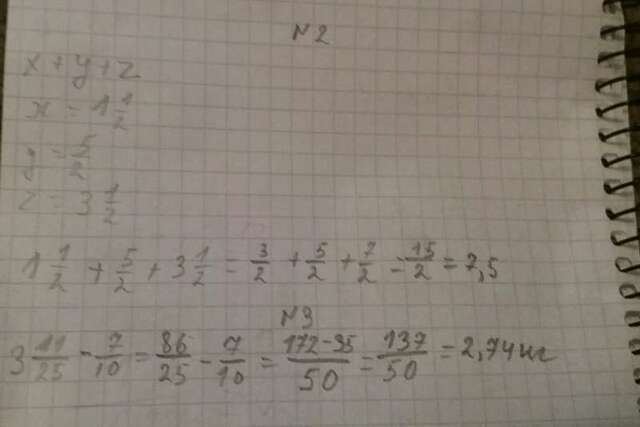 №2
x + y + z
x = 1 1/2
y = 5/2
z = 3 1/2
1 1/2 + 5/2 + 3 1/2 = 3/2 + 5/2 + 7/2 = 15/2 = 7,5
№3
3 11/25 - 7/10 = 86/25 - 7/10 = 172-35/50 = 137/50 = 2,74 кг